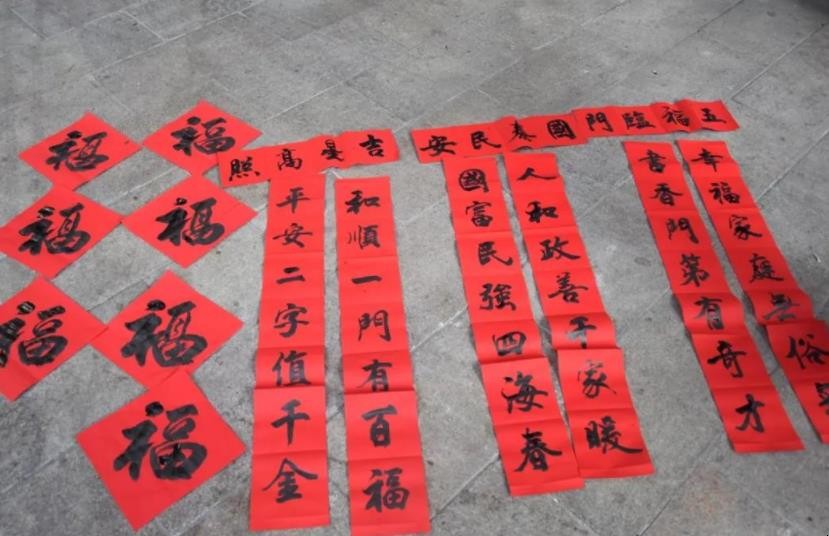 福
福
福
福
福
福
福
吉星高照
和順一門有百福
平安二字值千金
國泰民安
人和政善千家暖
國富民強四海春
五福臨門
幸福家庭俗
書香門第有奇才